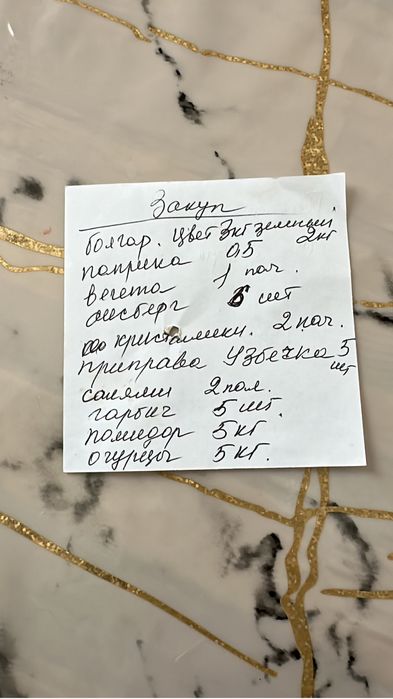 Закуп
болгар. цвет 3кг зеленый 2кг
паприка 0,5
вегета 1 пач.
айсберг 6 шт
кристаллики. 2 пач.
приправа Узбечка 5 шт
салями 2 пал.
гарбич 5 шт.
помидор 5 кг
огурцы 5 кг.